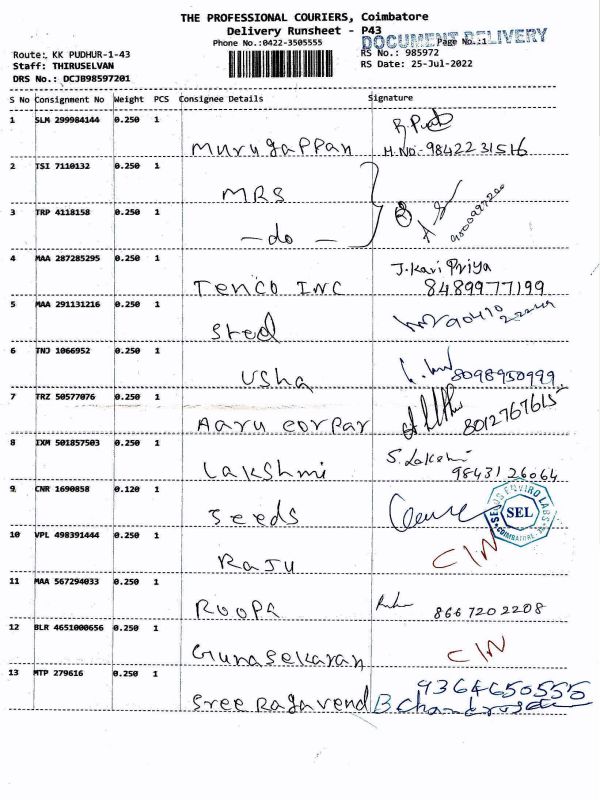 THE PROFESSIONAL COURIERS, Coimbatore
Delivery Runsheet - P43
Phone No.:0422-3505555
DOCUMENT DELIVERY
Page No.:1
Route: KK PUDHUR-1-43
RS No.: 985972
Staff: THIRUSELVAN
RS Date: 25-Jul-2022
DRS No.: DCJB98597201
S No Consignment No Weight PCS Consignee Details Signature
1 SLM 299984144 0.250 1
Murugappan H.NO. 9842231516
2 TSI 7110132 0.250 1
MRS
3 TRP 4118158 0.250 1
- do -
4 MAA 287285295 0.250 1 J. Kavi Priya
Tenco INC 8489977199
5 MAA 291131216 0.250 1
Sted
6 TNJ 1066952 0.250 1
Usha 8098950999
7 TRZ 50577076 0.250 1
Aaru corpar 8012767615
8 IXM 501857503 0.250 1 S. Lakshmi
Lakshmi 9843126064
9 CNR 1690858 0.120 1
Seeds
SEL
10 VPL 498391444 0.250 1
Raju CIN
11 MAA 567294033 0.250 1
Roopa 8667202208
12 BLR 4651000656 0.250 1
Gunasekaran CIN
13 MTP 279616 0.250 1 9364650555
Sree Ragavend